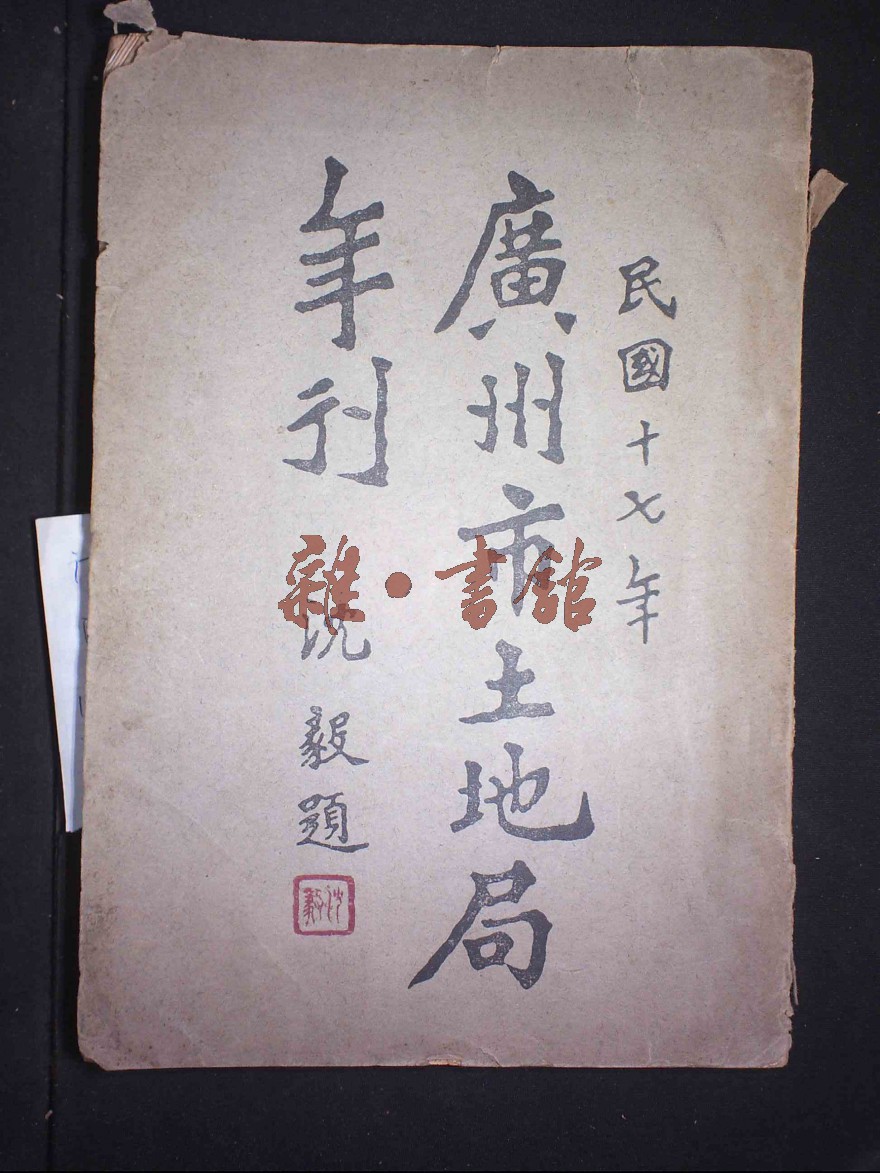 民國十七年
廣州市土地局
年刊
沈毅題
雜·書館